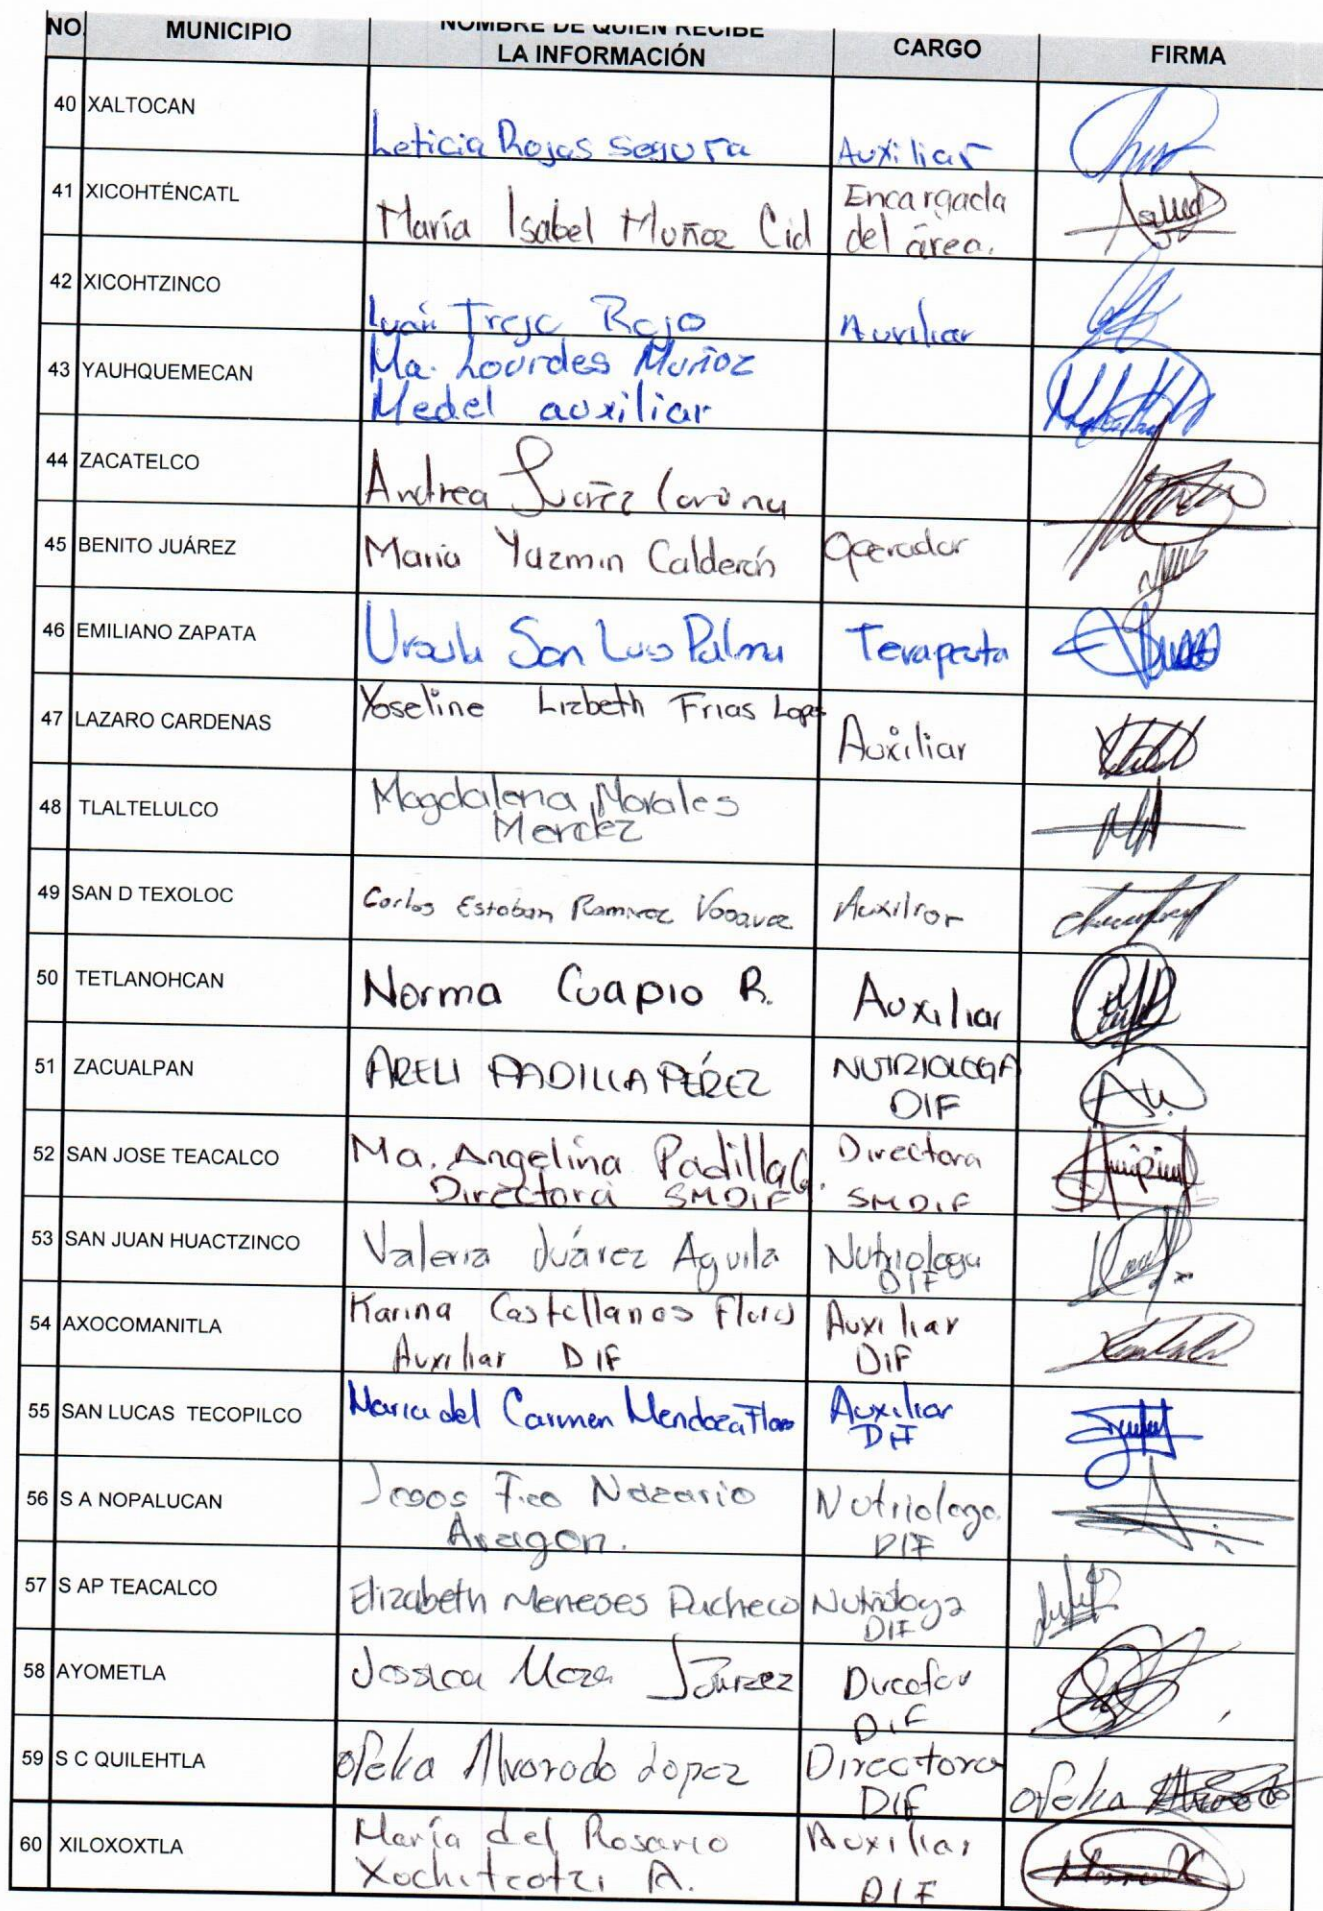 NO. MUNICIPIO NOMBRE DE QUIEN RECIBE LA INFORMACIÓN CARGO FIRMA
40 XALTOCAN Leticia Rojas Segura Auxiliar
41 XICOHTÉNCATL María Isabel Muñoz Cid Encargada
del área.
42 XICOHTZINCO Trejo Rojo Auxiliar
43 YAUHQUEMECAN Ma. Lourdes Muñoz
Medel auxiliar
44 ZACATELCO Andrea
45 BENITO JUÁREZ Maria Yazmin Calderón Operador
46 EMILIANO ZAPATA Ursula San Luis Palma Terapeuta
47 LAZARO CARDENAS Yoseline Lizbeth Frias Lopez Auxiliar
48 TLALTELULCO Magdalena Morales
Mendez
49 SAN D TEXOLOC Carlos Estaban Ramirez Auxiliar
50 TETLANOHCAN Norma Cuapio R. Auxiliar
51 ZACUALPAN ARELI PADILLA PÉREZ NUTRIOLOGA
DIF
52 SAN JOSE TEACALCO Ma. Angelina Padilla G. Directora
Directora SMDIF SMDIF
53 SAN JUAN HUACTZINCO Valeria Juárez Aguila Nutriologa
DIF
54 AXOCOMANITLA Karina Castellanos Flores Auxiliar
Auxiliar DIF DIF
55 SAN LUCAS TECOPILCO Maria del Carmen Mendoza Flores Auxiliar
DIF
56 S A NOPALUCAN Nazario Nutriologo
Aragon. DIF
57 S AP TEACALCO Elizabeth Meneses Pacheco Nutriologa
DIF
58 AYOMETLA Jessica Meza Directora
DIF
59 S C QUILEHTLA Ofelia Alvarado Lopez Directora Ofelia
DIF
60 XILOXOXTLA María del Rosario Auxiliar
Xochitcotzi A. DIF